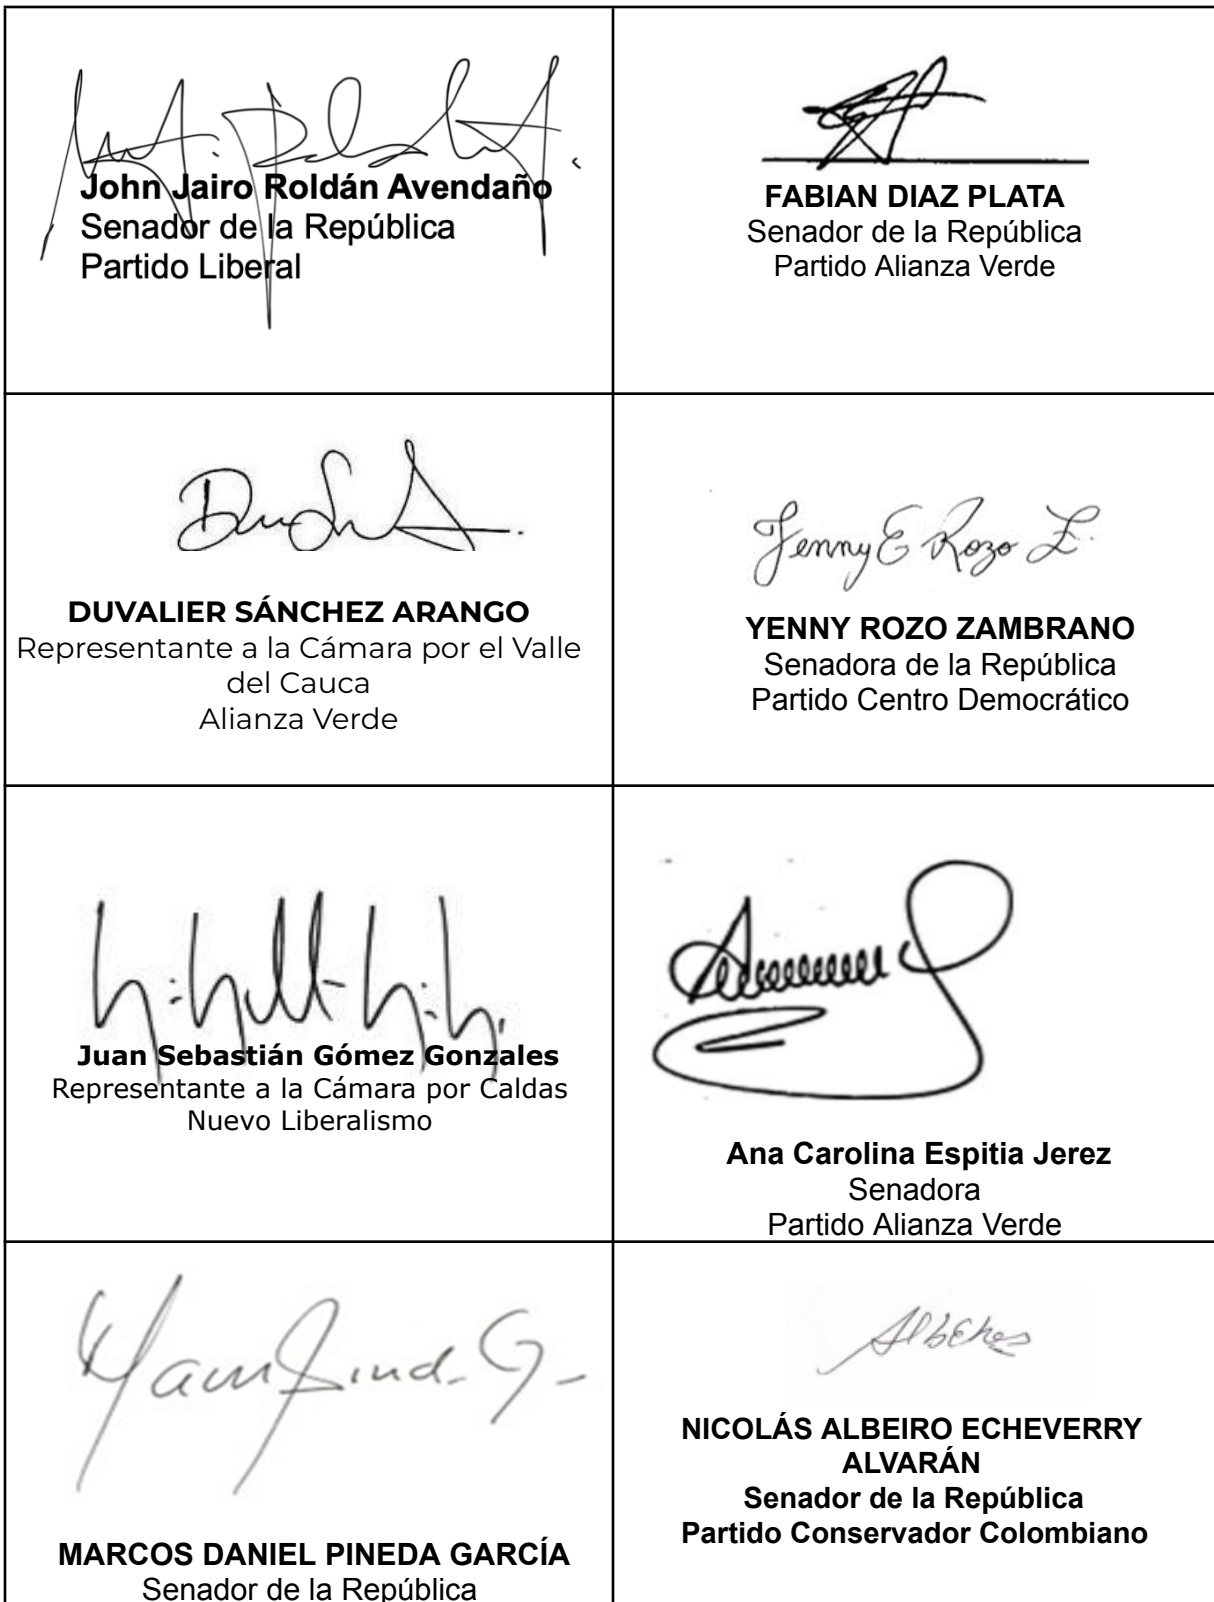 John Jairo Roldán Avendaño
Senador de la República
Partido Liberal
FABIAN DIAZ PLATA
Senador de la República
Partido Alianza Verde
DUVALIER SÁNCHEZ ARANGO
Representante a la Cámara por el Valle
del Cauca
Alianza Verde
Jenny E Rozo Z.
YENNY ROZO ZAMBRANO
Senadora de la República
Partido Centro Democrático
Juan Sebastián Gómez Gonzales
Representante a la Cámara por Caldas
Nuevo Liberalismo
Ana Carolina Espitia Jerez
Senadora
Partido Alianza Verde
MARCOS DANIEL PINEDA GARCÍA
Senador de la República
NICOLÁS ALBEIRO ECHEVERRY
ALVARÁN
Senador de la República
Partido Conservador Colombiano